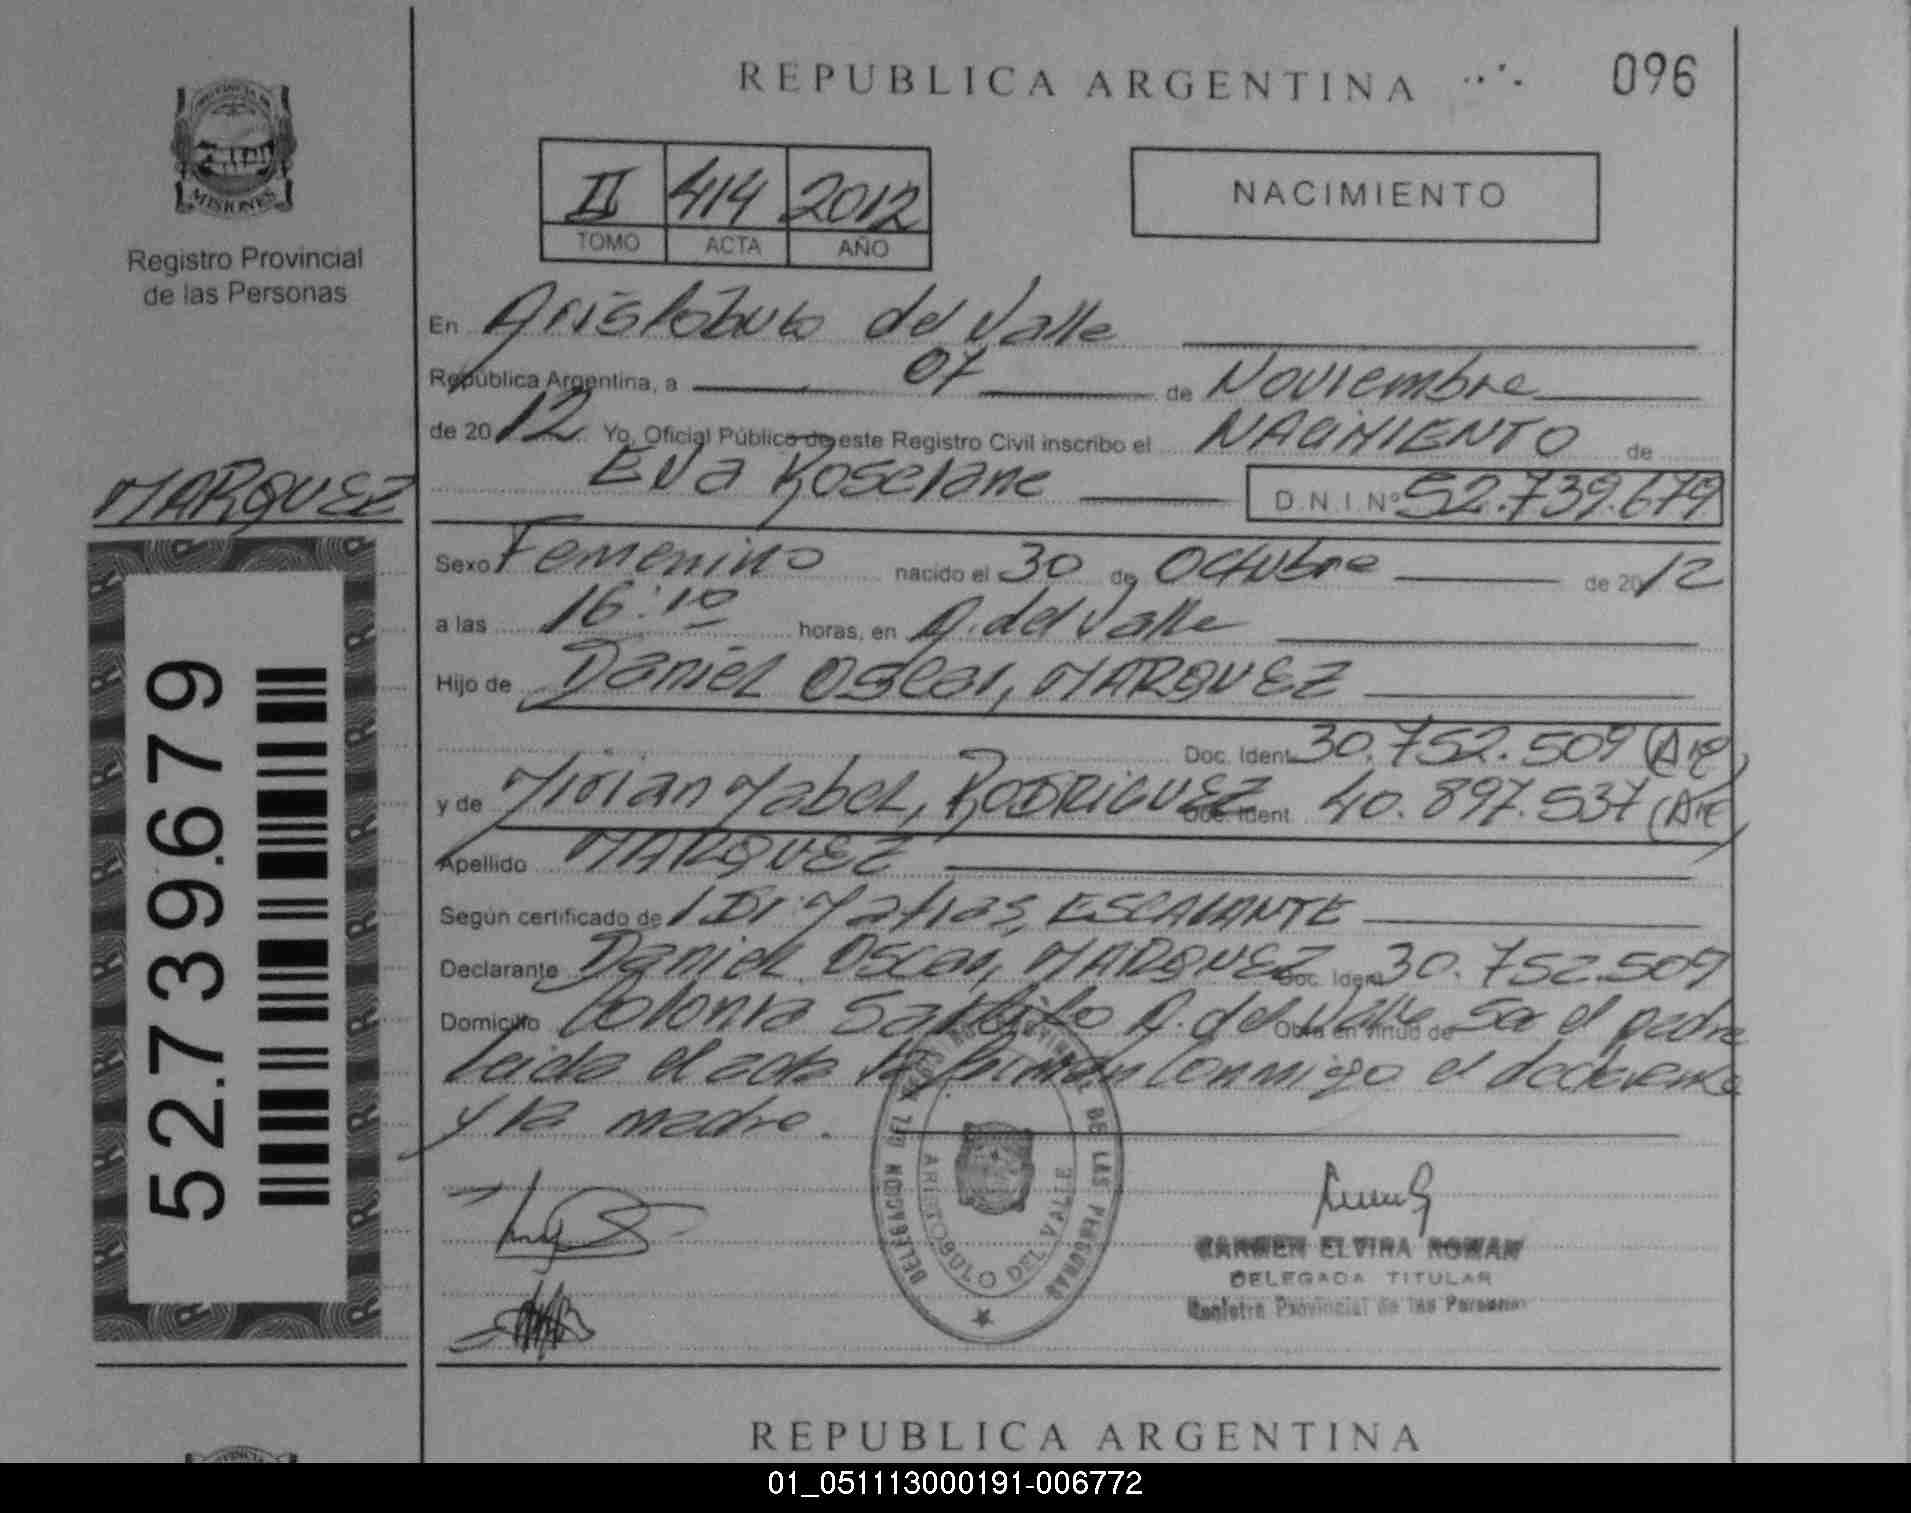 REPUBLICA ARGENTINA
096
PROVINCIA DE MISIONES
Registro Provincial
de las Personas
II 414 2012
TOMO ACTA AÑO
NACIMIENTO
En Aristóbulo del Valle
República Argentina, a 07 de Noviembre
de 2012 Yo, Oficial Público de este Registro Civil inscribo el NACIMIENTO de
Eva Roselane D.N.I. Nº 52.739.679
MARQUEZ
52.739.679
Sexo Femenino nacido el 30 de Octubre de 2012
a las 16:10 horas, en A. del Valle
Hijo de Daniel Oscar, MARQUEZ
Doc. Ident 30.752.509 (Arg)
y de Mirian Mabel, RODRIGUEZ Doc. Ident 40.897.537 (Arg)
Apellido MARQUEZ
Según certificado de Matias, ESCALANTE
Declarante Daniel Oscar, MARQUEZ Doc. Ident 30.752.509
Domicilio Colonia A. del Valle Obra en virtud de Ser el padre
Leida el acta la firman conmigo el declarante
y la madre.
REGISTRO PROVINCIAL DE LAS PERSONAS
ARISTOBULO DEL VALLE
CARMEN ELVIRA ROMAN
DELEGADA TITULAR
Registro Provincial de las Personas
REPUBLICA ARGENTINA
01_051113000191-006772